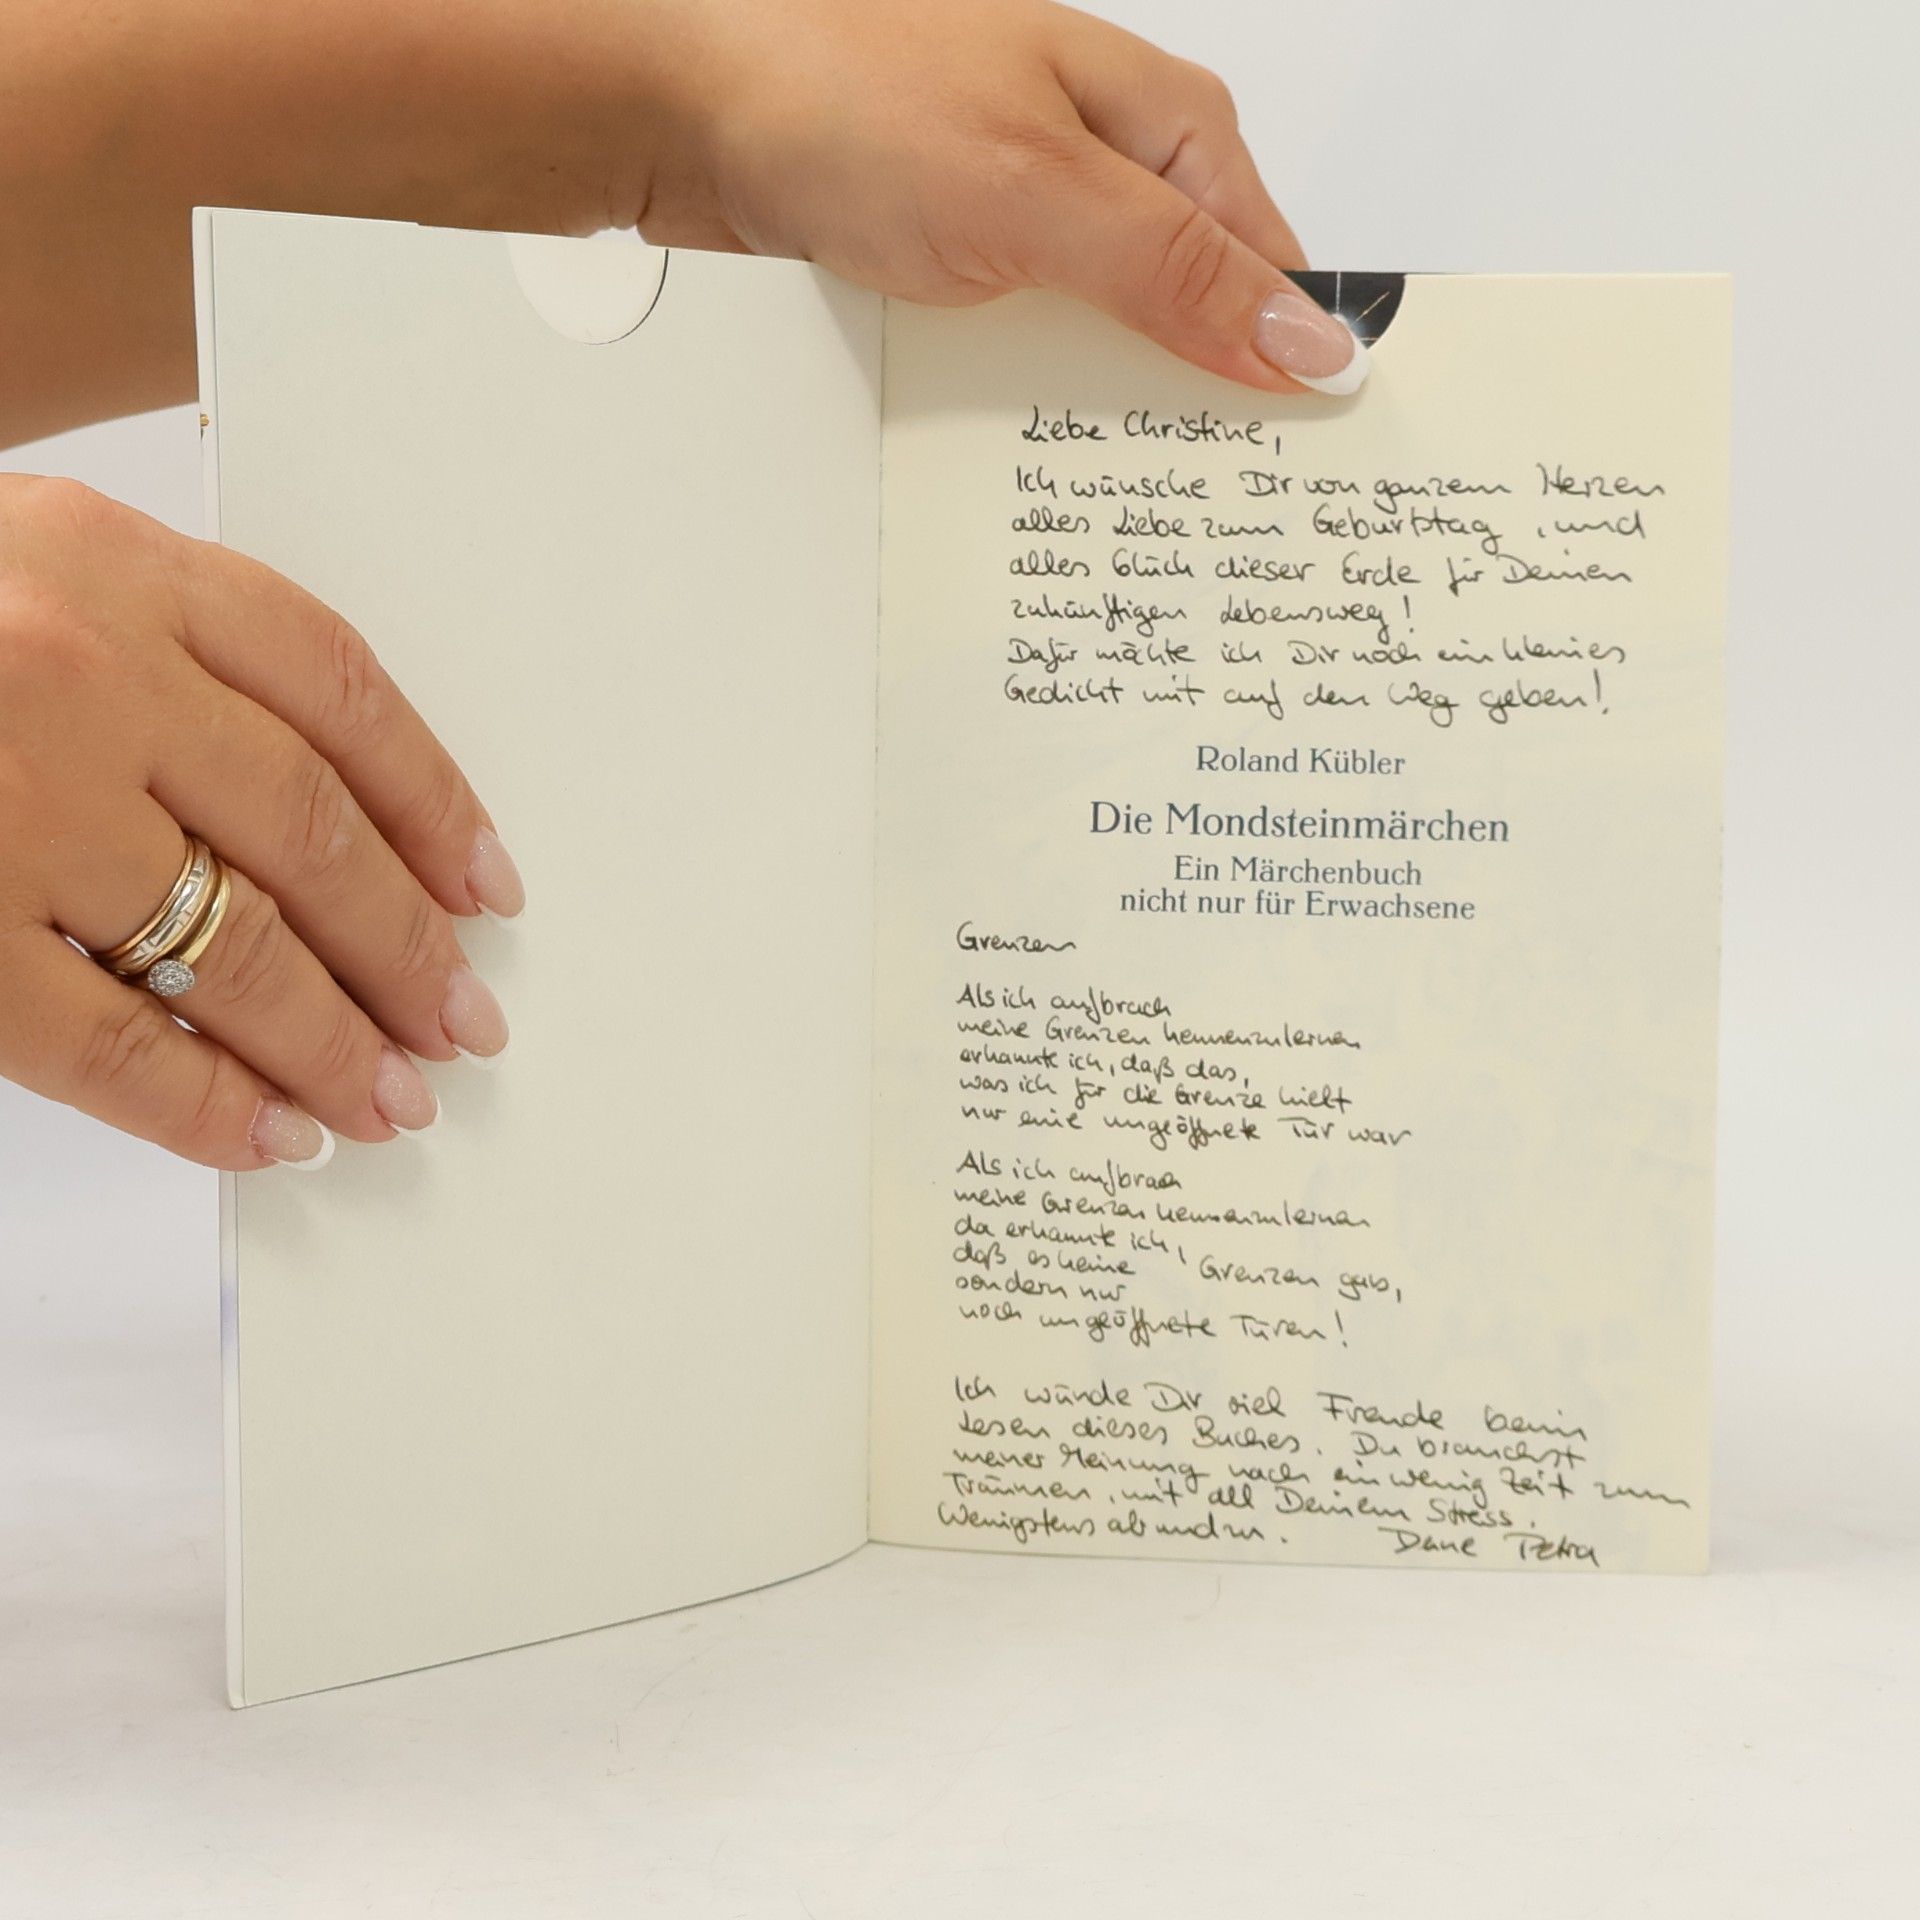 Liebe Christine,
Ich wünsche Dir von ganzem Herzen
alles Liebe zum Geburtstag, und
alles Glück dieser Erde für Deinen
zukünftigen Lebensweg!
Dafür möchte ich Dir noch ein kleines
Gedicht mit auf den Weg geben!
Roland Kübler
Die Mondsteinmärchen
Ein Märchenbuch
nicht nur für Erwachsene
Grenzen
Als ich aufbrach
meine Grenzen kennenzulernen
erkannte ich, daß das,
was ich für die Grenze hielt
nur eine ungeöffnete Tür war
Als ich aufbrach
meine Grenzen kennenzulernen
da erkannte ich,
daß es keine Grenzen gab,
sondern nur
noch ungeöffnete Türen!
Ich wünde Dir viel Freude beim
Lesen dieses Buches. Du brauchst
meiner Meinung nach ein wenig Zeit zum
Träumen, mit all Deinem Stress.
Wenigstens ab und zu. Deine Petra